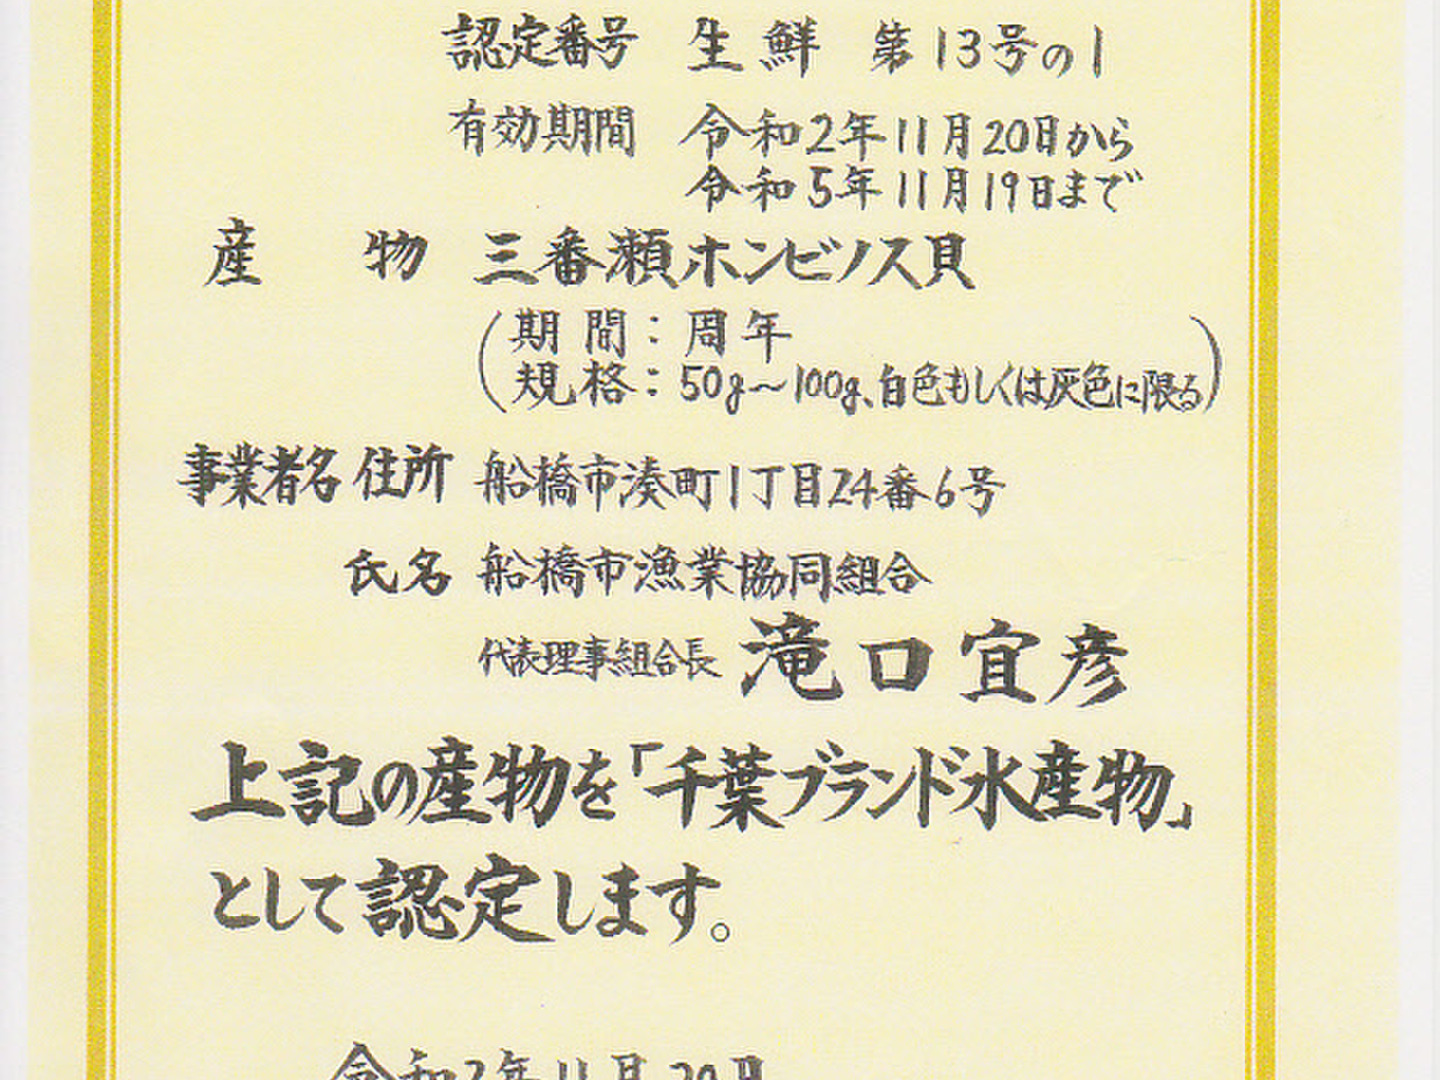 認定番号 生鮮 第13号の1
有効期間 令和2年11月20日から
令和5年11月19日まで
産物 三番瀬ホンビノス貝
(期間:周年
規格:50g~100g、白色もしくは灰色に限る)
事業者名 住所 船橋市湊町1丁目24番6号
氏名 船橋市漁業協同組合
代表理事組合長 滝口宜彦
上記の産物を「千葉ブランド水産物」
として認定します。
令和2年11月20日